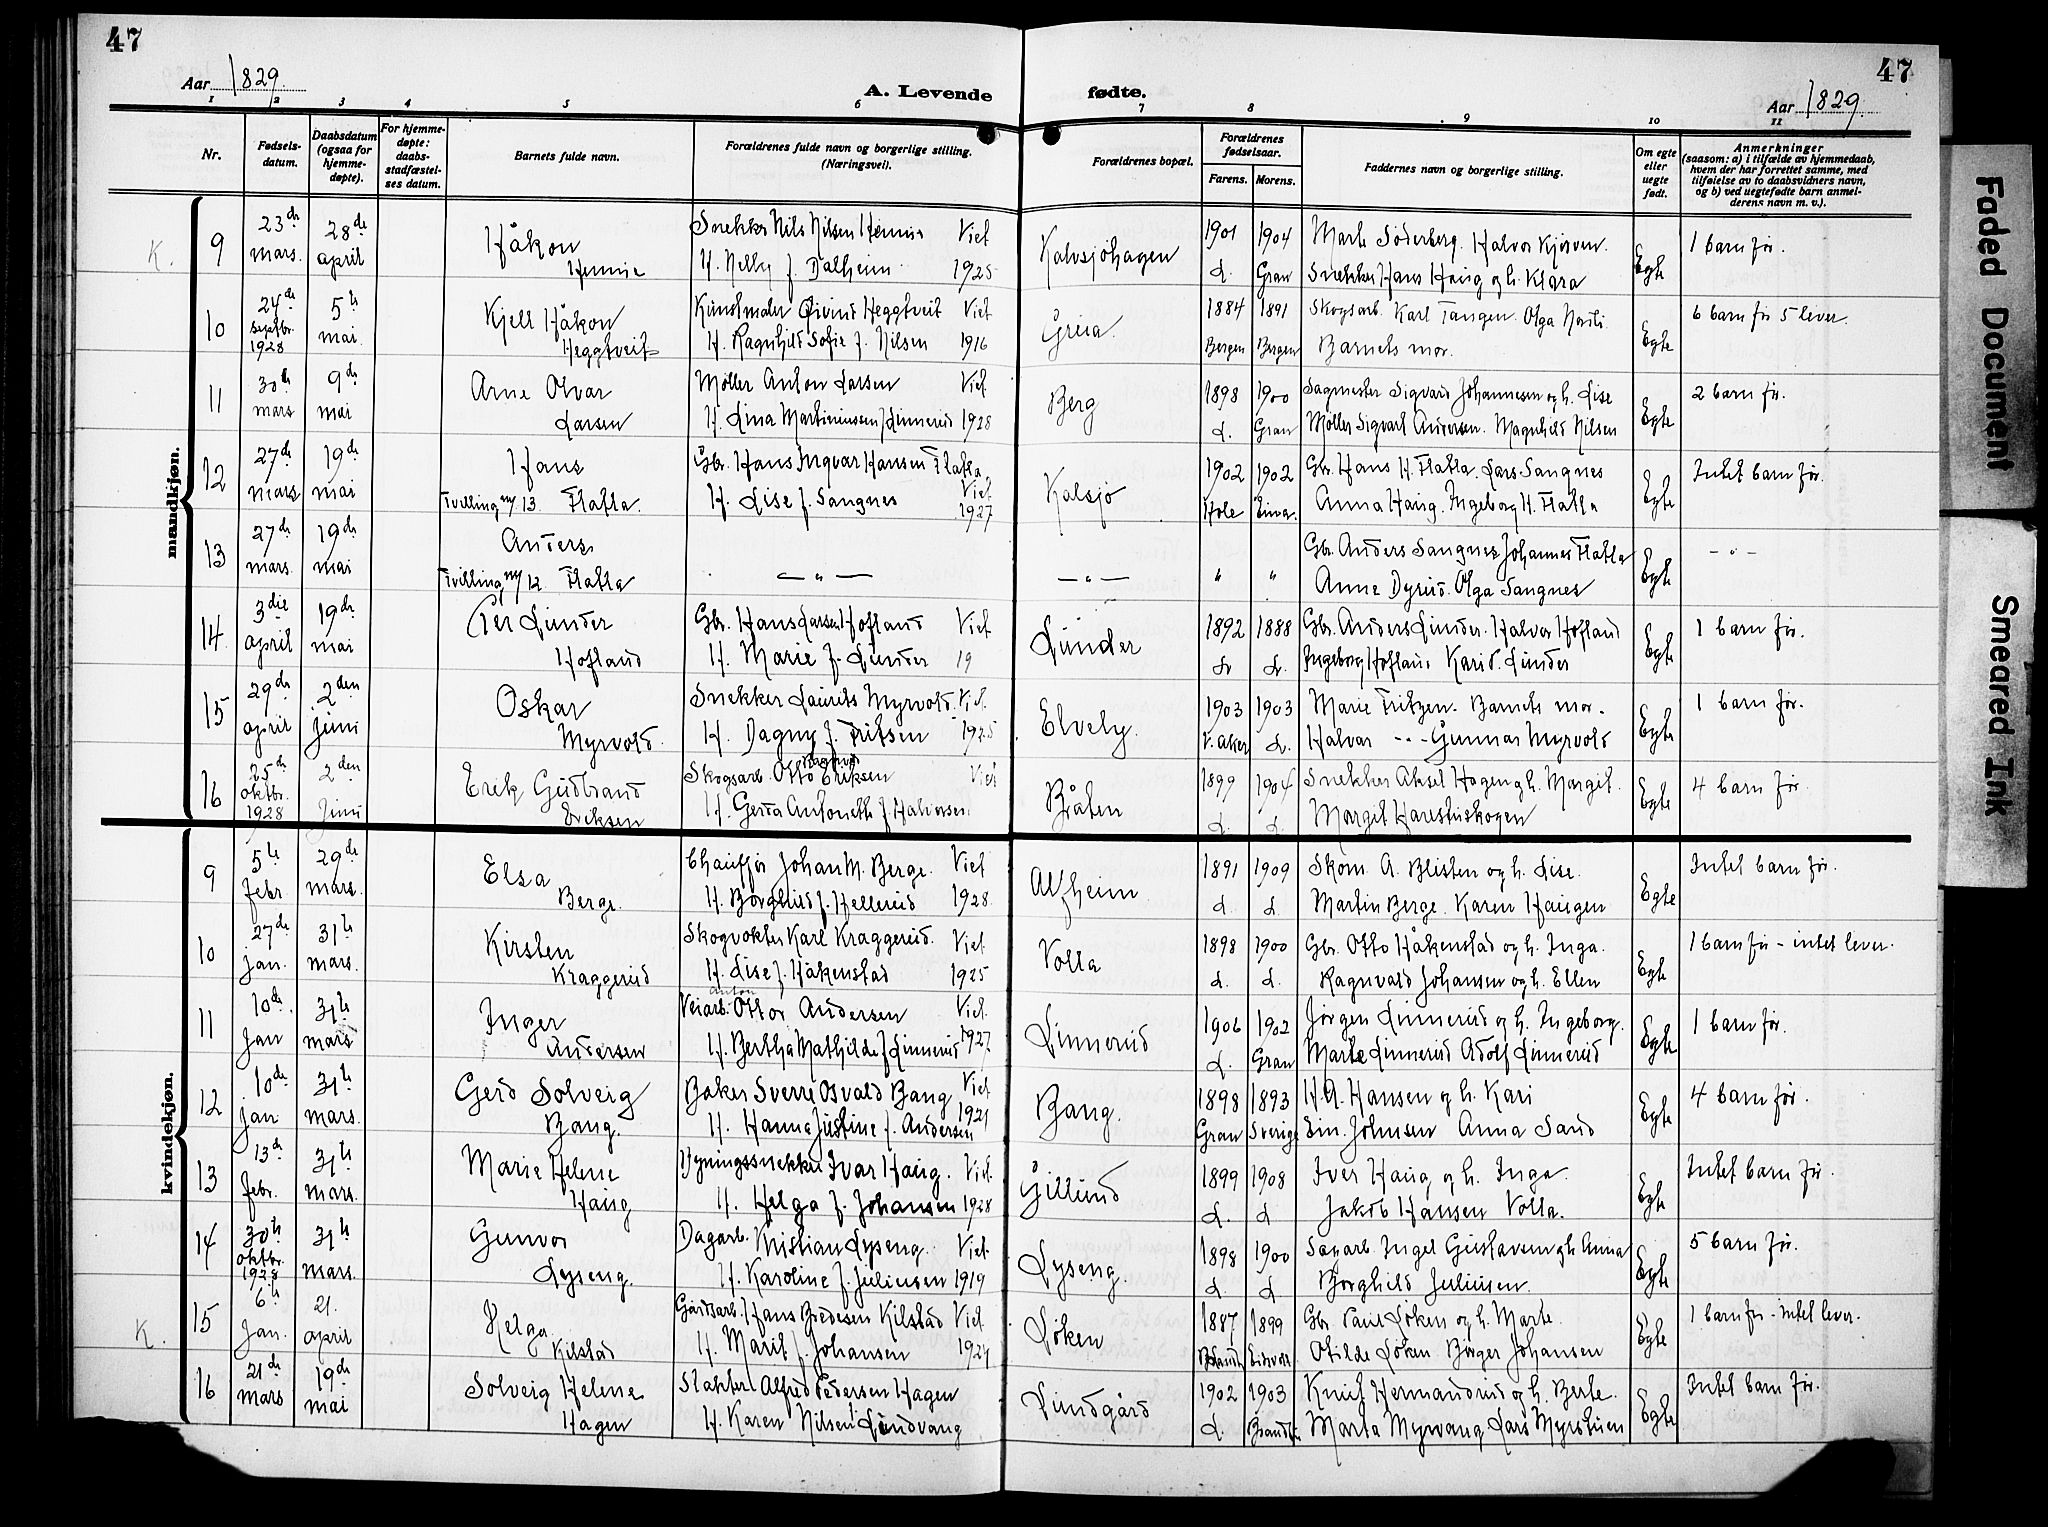 47
47
Aar 1829.
A. Levende fødte.
Aar 1829.
1 2 3 4 5 6 7 8 9 10 11
Nr.
Fødsels-datum.
Daabsdatum (ogsaa for hjemme-døpte).
For hjemme-døpte: daabs-stadfæstel-ses datum.
Barnets fulde navn.
Forældrenes fulde navn og borgerlige stilling. (Næringsvei).
Forældrenes bopæl.
Forældrenes fødselsaar.
Farens. Morens.
Faddernes navn og borgerlige stilling.
Om egte eller uegte født.
Anmerkninger (saasom: a) i tilfælde av hjemmedaab, hvem der har forrettet samme, med tilføielse av to daabsvidners navn, og b) ved uegtefødte barn anmel-derens navn m. v.).
mandkjøn.
K. 9 23de mars. 28de april Håkon Hennie Snekker Nils Nilsen Hennie Viet H. Nelly f. Dalheim 1925 Kalvsjøhagen 1901 L. 1904 Gran Marte Söderberg. Halvor Kjørven. Snekker Hans Haug og h. Klara Egte 1 barn før.
10 24de septbr. 1928 5te mai. Kjell Håkon Heggtveit Kunstmaler Øivind Heggtveit Viet H. Ragnhild Sofie f. Nilsen 1916 Grua. 1884 Bergen 1891 Bergen Skogsarb. Karl Tangen. Olga Nordli. Barnets mor. Egte 6 barn før 5 lever.
11 30te mars 9de mai Arne Olvar Larsen Møller Anton Larsen Viet H. Lina Martiniusen f. Linnerud 1928 Berg 1898 L. 1900 Gran Sagmester Sigvard Johannesen og h. Lise Møller Sigvart Andersen. Magnhild Nilsen Egte 2 barn før.
12 27de mars 19de mai Hans Tvilling m/ 13. Flatla. Gbr. Hans Ingvar Hansen Flatla Viet H. Lise f. Sangnes 1927 Kalsjø 1902 Hole 1902 Eina. Gbr. Hans H. Flatla. Lars Sangnes Anna Haug. Ingeborg H. Flatla Egte Intet barn før.
13 27de mars. 19de mai Anders Tvilling m/ 12. Flatla — " — — " — " " Gbr. Anders Sangnes Johannes Flatla Anne Dyrud. Olga Sangnes Egte - " -
14 3die april 19de mai Per Lunder Hofland Gbr. Hans Larsen Hofland Viet H. Marie f. Lunder 19 Lunder 1892 L. 1888 L. Gbr. Anders Lunder. Halvor Hofland Ingeborg Hofland Kari d. Lunder Egte 1 barn før.
15 29de april 2den Juni Oskar Myrvold. Snekker Laurits Myrvold. Viet. H. Dagny f. Fritsen 1925 Elvely. 1903 V. aker 1903 L. Marie Fritzen. Barnets mor. Halvar - " - Gunnar Myrvold Egte 1 barn før.
16 25de oktbr. 1928 2den Juni Erik Gudbrand Eriksen Skogsarb. Otto Ragnvald Eriksen Viet H. Gerda Antonette f. Halvorsen Bråten 1899 L. 1904 L. Snekker Aksel Hagen og h. Margit. Margit Harestuskogen Egte 4 barn før.
kvindekjøn.
9 5te febr. 29de mars. Elsa Berge. Chauffør Johan M. Berge. Viet H. Borghild f. Hellerud 1928. Alfheim 1891 L. 1909 L. Skom. A. Blisten og h. Lise. Martin Berge. Karen Haugen Egte Intet barn før.
10 27de jan. 31te mars. Kirsten Kraggerud Skogvokter Karl Kraggerud. Viet. H. Lise f. Håkenstad 1925 Volla 1898 L. 1900 L. Gbr. Otto Håkenstad og h. Inga. Ragnvald Johansen og h. Ellen Egte 1 barn før - intet lever.
11 10de Jan 31te mars Inger Andersen Veiarb. Ottor Anton Andersen Viet. H. Bertha Mathilde f. Linnerud 1927. Linnerud 1906 L. 1902 Gran Jørgen Linnerud og h. Ingeborg. Marte Linnerud Adolf Linnerud Egte 1 barn før.
12 10de Jan 31te mars. Gerd Solveig Bang. Baker Sverre Osvald Bang Viet H. Hanna Justine f. Andersen 1921 Bang. 1898 Gran 1893 Sverige H.A. Hansen og h. Kari Ein. Johnsen Anna Sand Egte 4 barn før.
13 13de febr. 31te mars. Marie Helene Haug Bygningssnekker Ivar Haug. Viet. H. Helga f. Johansen 1928 Gillund 1899 L. 1908 L Iver Haug og h. Inga. Jakob Hansen Volla. Egte Intet barn før.
14 30te oktbr. 1928 31te mars. Gunvor Lyseng. Dagarb. Kristian Lyseng. Viet. H. Karoline f. Juliusen 1919 Lyseng. 1898 L. 1900 L Sagarb. Ingel Gustavsen og h. Anna Borghild Juliusen. Egte 5 barn før.
K. 15 6te Jan. 21. april Helga Kilstad Gårdsarb. Hans Bredesen Kilstad Viet H. Marit f. Johansen 1924 Løken 1887 Brandb 1899 Eidsvoll Gbr. Paul Løken og h. Marte. Otilde Løken Birger Johansen Egte 1 barn før - intet lever.
16 21de mars 19de mai Solveig Helene Hagen Slakter Alfred Pedersen Hagen H. Karen Nilsen f. Lundvang Lundgård 1902 L. 1903 Brandbu Knut Hermandrud og h. Berte. Marta Myrvang Lars Myrstuen Egte Intet barn før.
Faded Document
Smeared Ink